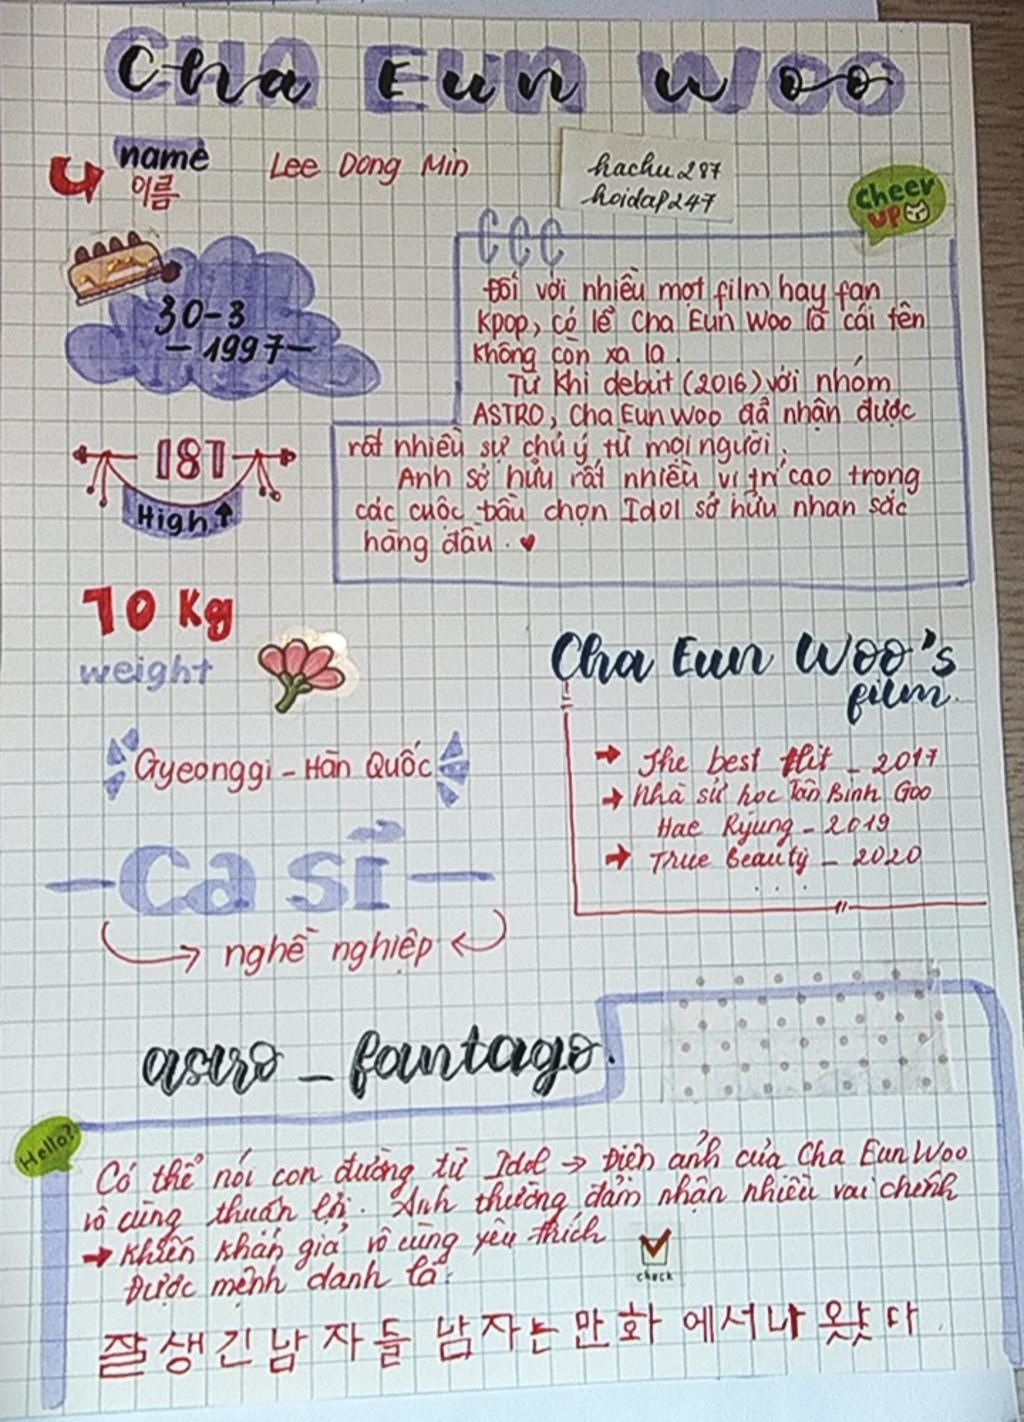 Cha Eun Woo
name
이름
Lee Dong Min
hachu287
hoidap247
cheer
UP
30-3
- 1997 -
CCC
Đối với nhiều mọt film hay fan
Kpop, có lẽ Cha Eun Woo là cái tên
không còn xa lạ.
Từ khi debut (2016) với nhóm
ASTRO, Cha Eun Woo đã nhận được
rất nhiều sự chú ý từ mọi người.
Anh sở hữu rất nhiều vị trí cao trong
các cuộc bầu chọn Idol sở hữu nhan sắc
hàng đầu. ♥
187
High ↑
70 Kg
weight
Gyeonggi - Hàn Quốc
Cha Eun Woo's
film.
→ The best Hit - 2017
→ Nhà sử học Tân Binh Goo
Hae Ryung - 2019
→ True Beauty - 2020
. . .
- Ca sĩ -
→ nghề nghiệp ←
astro - fantago.
Hello?
Có thể nói con đường từ Idol → Điện ảnh của Cha Eun Woo
vô cùng thuận lợi. Anh thường đảm nhận nhiều vai chính
→ khiến khán giả vô cùng yêu thích
Được mệnh danh là:
check
잘 생 긴 남 자 들 남 자 는 만 화 에서 나 왔 다